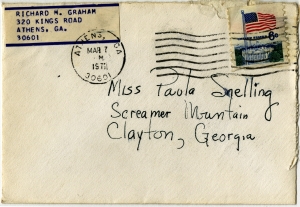 RICHARD M. GRAHAM
320 KINGS ROAD
ATHENS, GA.
30601
ATHENS, GA
MAR 7
M
1972
30601
6c
Miss Paula Snelling
Screamer Mountain
Clayton, Georgia